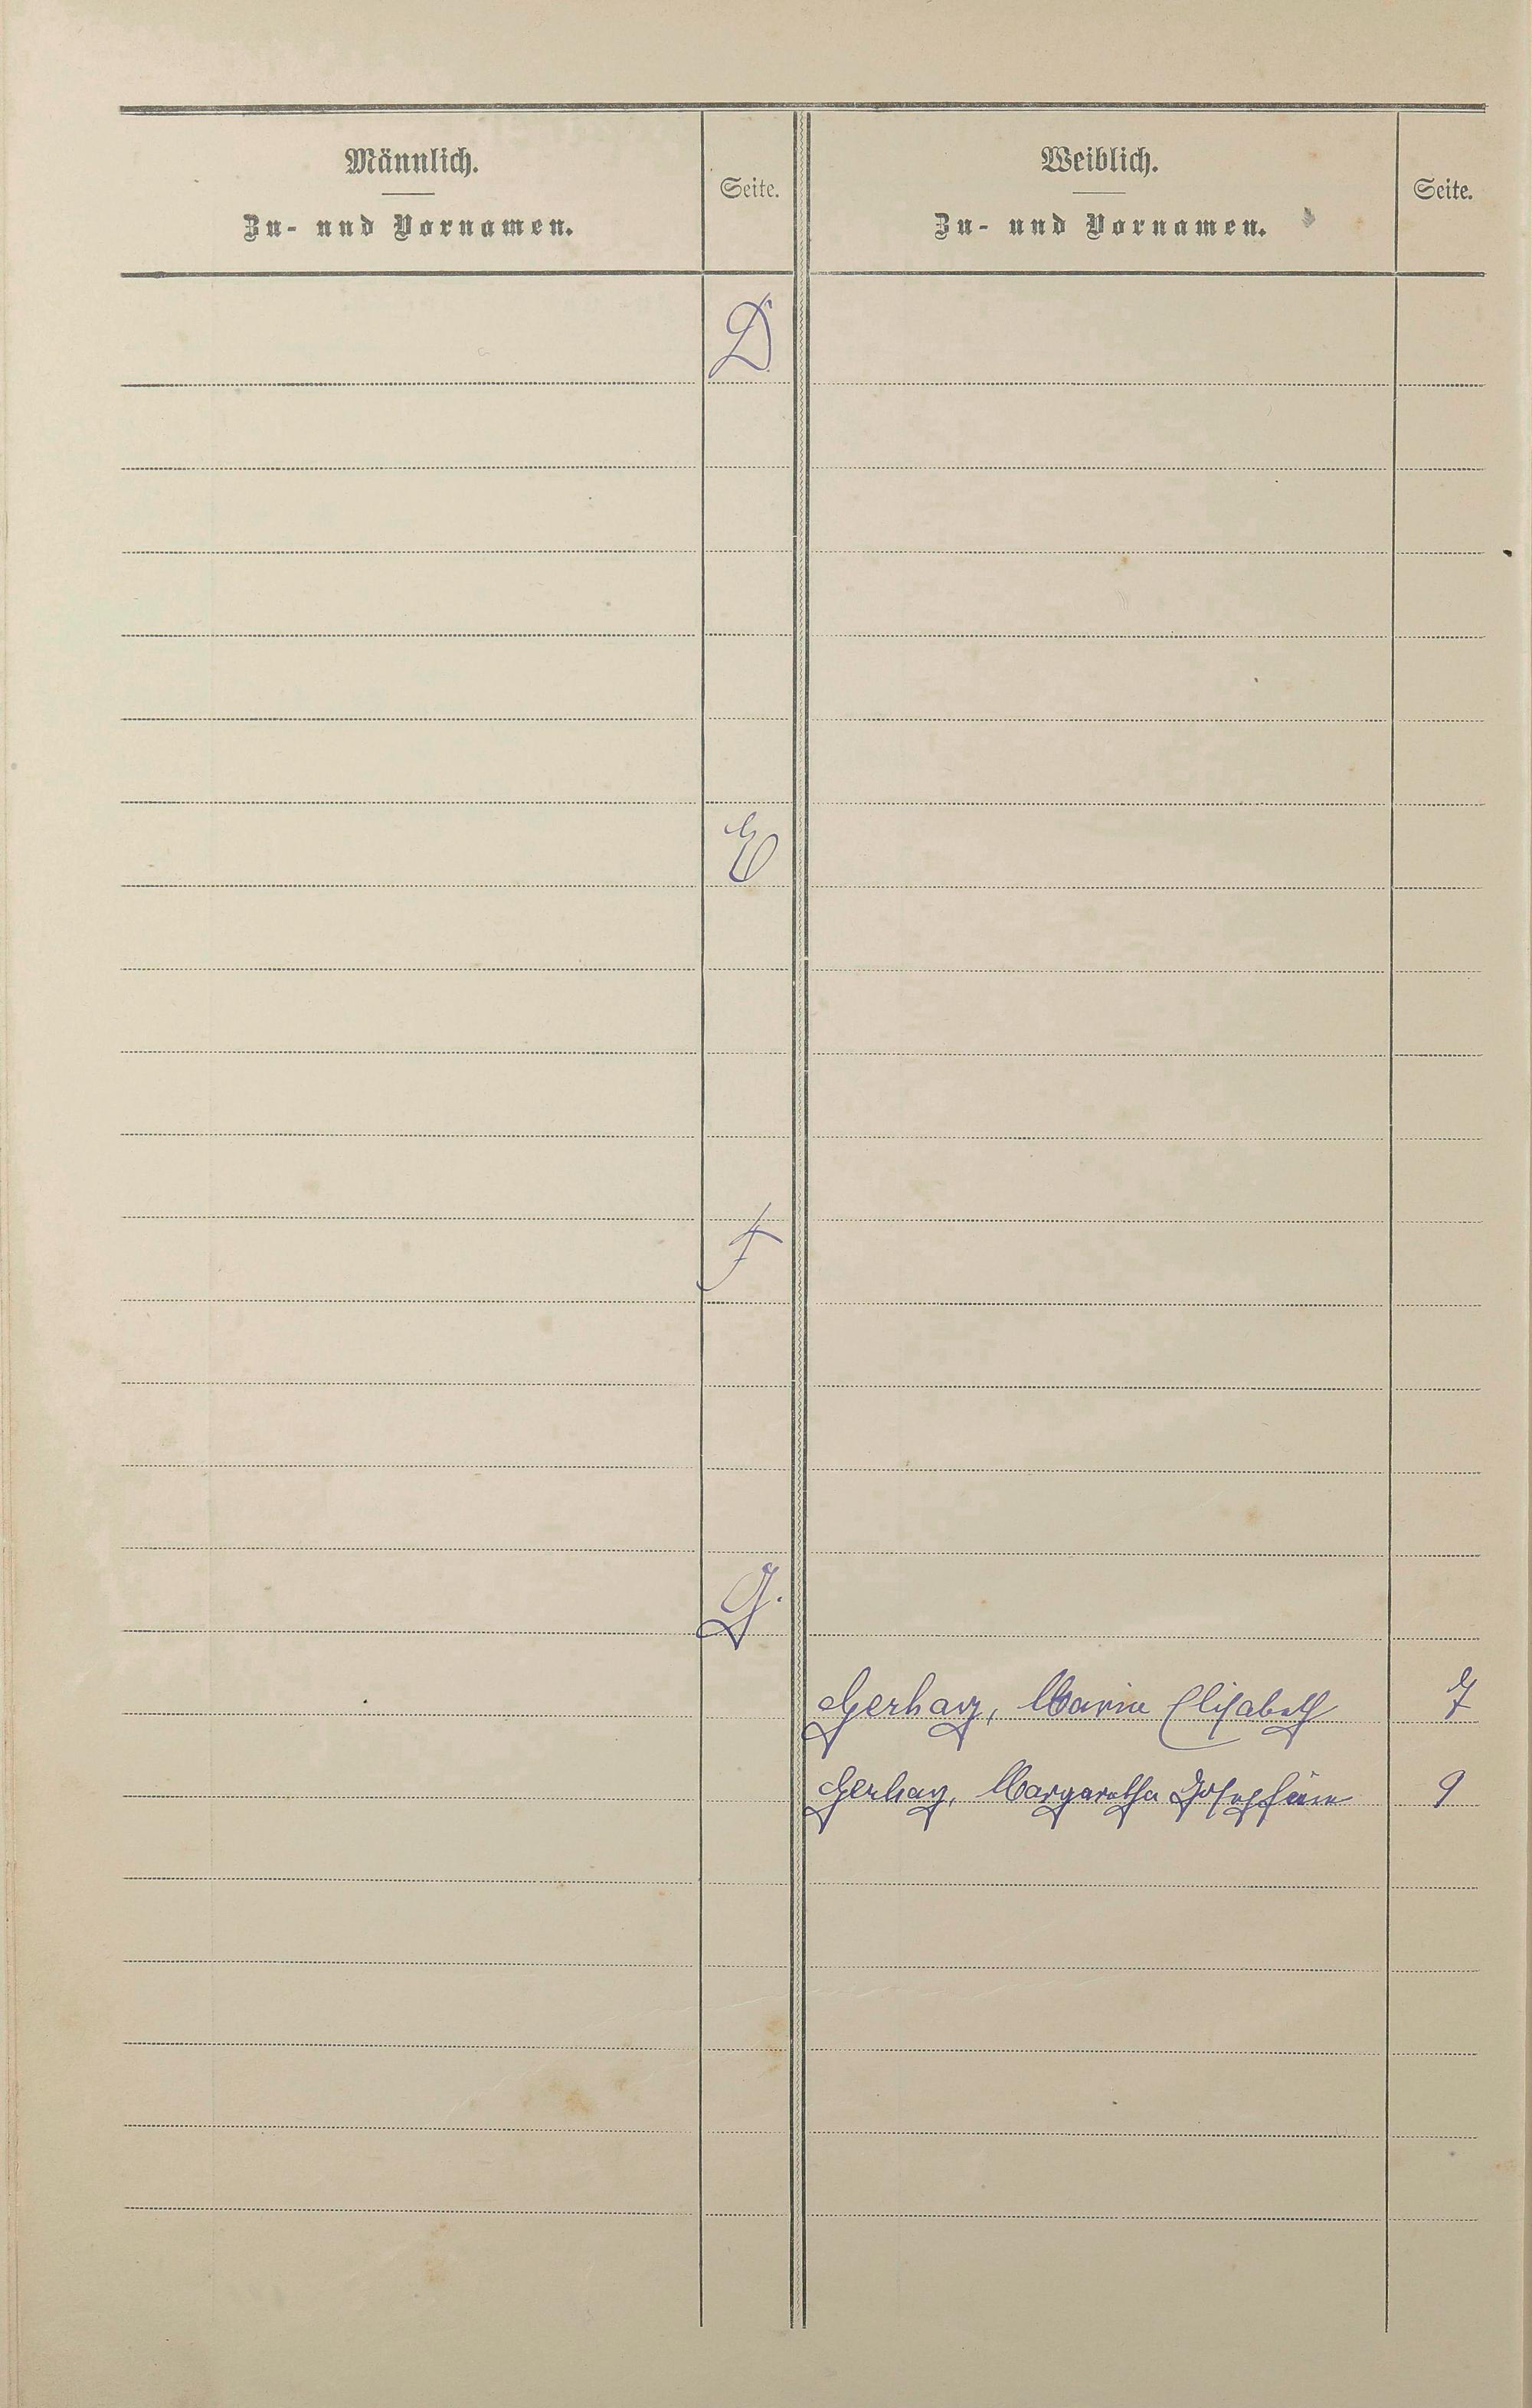 Männlich.
Zu- und Vornamen.
Seite.
Weiblich.
Zu- und Vornamen.
Seite.
D
E
F
G.
Gerharz, Maria Elisabeth 7
Gerharz, Margaretha Josephine 9